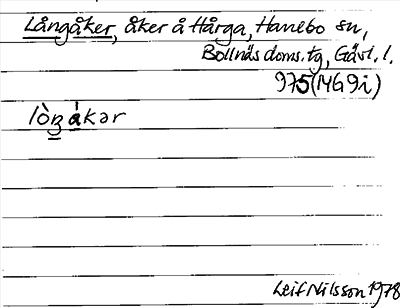 Långåker, åker å Hårga, Hanebo sn,
Bollnäs doms.tg, Gävl. l.
975 (14G9i)
lòŋåkər
Leif Nilsson 1978